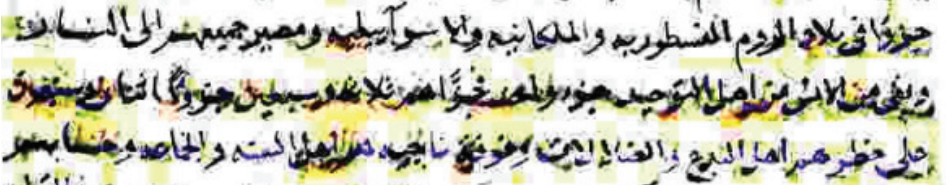 جزوًا في بلاد الروم النسطوريه والملكانيه والاسرآيليه ومصير جميعهم الى النار
وبقى من الامم من اهل التوحيد جزو واحد تجزّا هم ثلاثة وسبعين جزوًا اثنان وسبعون
على خطر هم اهل البدع والضلالات وفرقة ناجيه هم اهل السنه والجماعه وحسابهم